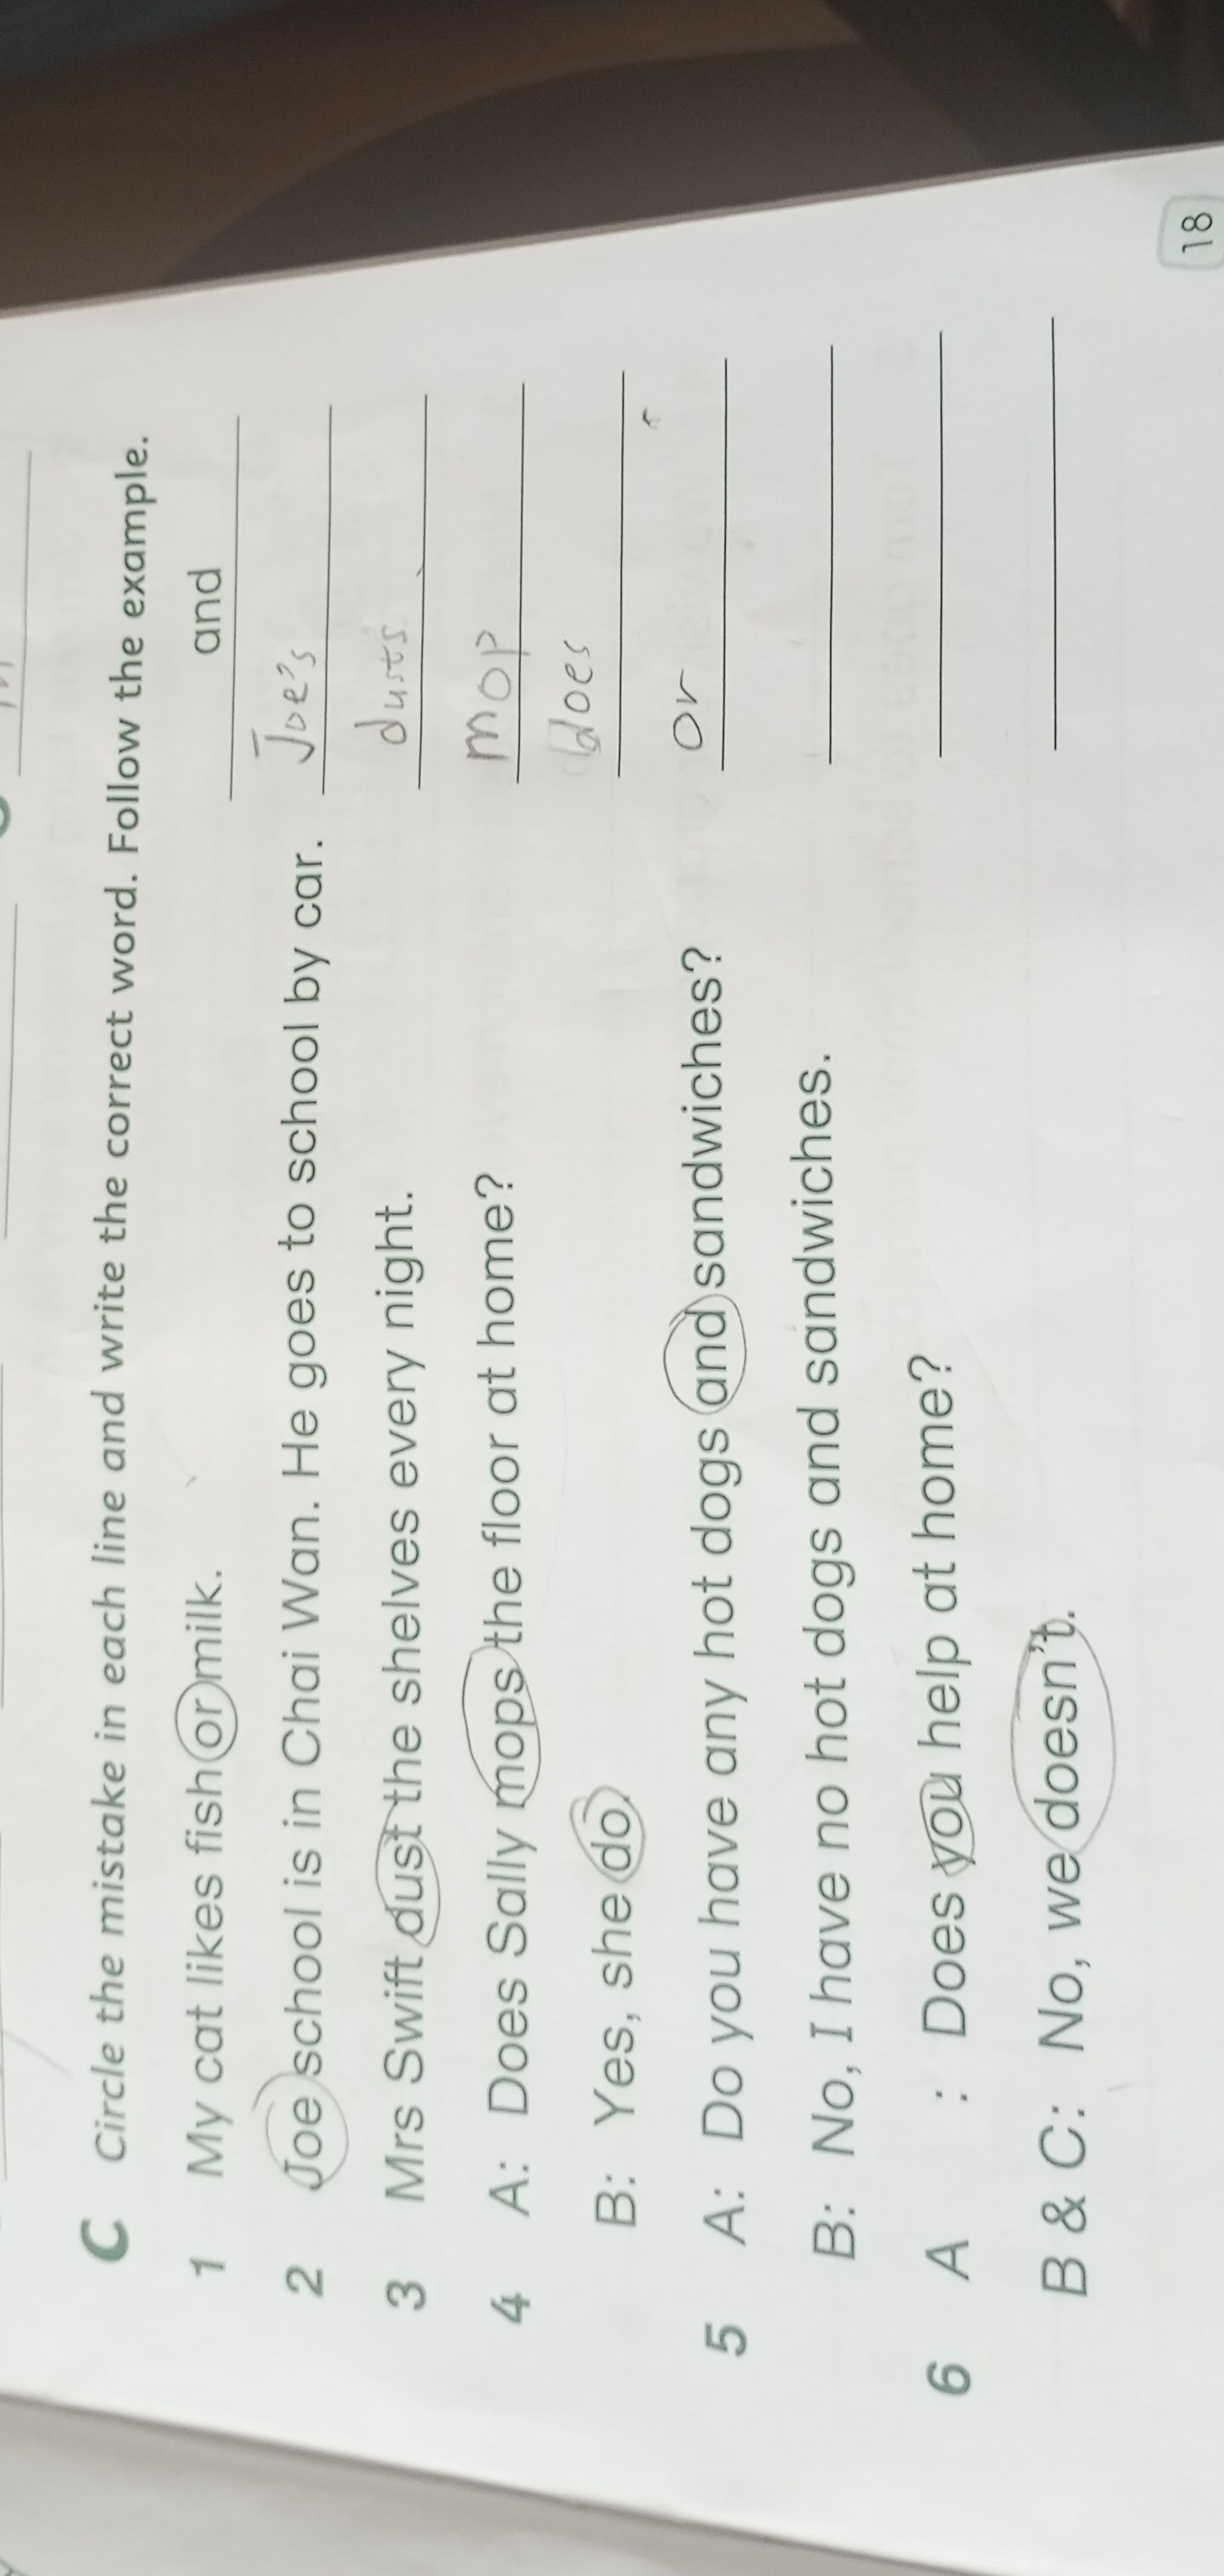 C Circle the mistake in each line and write the correct word. Follow the example.
1 My cat likes fish or milk. and
2 Joe school is in Chai Wan. He goes to school by car. Joe's
3 Mrs Swift dust the shelves every night. dusts
4 A: Does Sally mops the floor at home? mop
B: Yes, she do. does
5 A: Do you have any hot dogs and sandwiches? or
B: No, I have no hot dogs and sandwiches.
6 A : Does you help at home?
B & C: No, we doesn't.
18